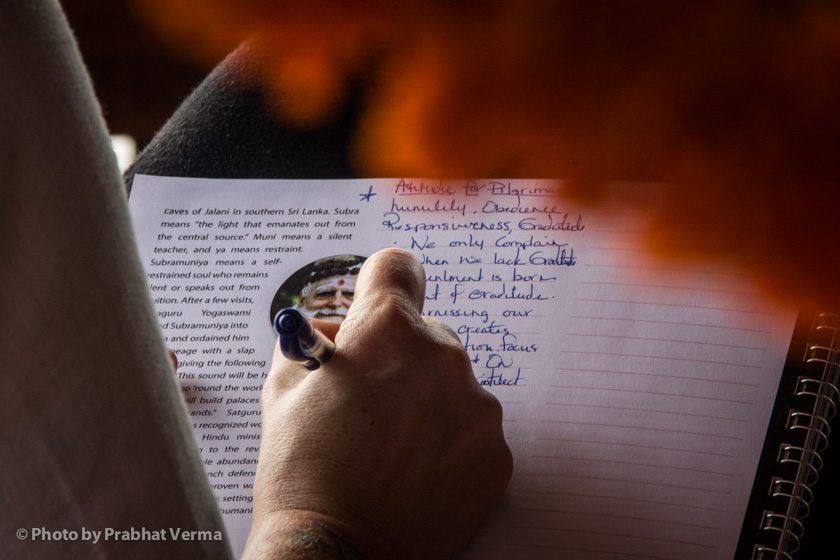 caves of Jalani in southern Sri Lanka. Subra
means "the light that emanates out from
the central source." Muni means a silent
teacher, and ya means restraint.
Subramuniya means a self-
restrained soul who remains
lent or speaks out from
uition. After a few visits,
aguru Yogaswami
d Subramuniya into
a and ordained him
neage with a slap
giving the following
"This sound will be h
'round the world
ill build palaces
ands." Satguru
s recognized wo
Hindu minis
n to the rev
le abundan
nch defen
roven wa
, setting
humani
* Attitude for Pilgrima
humility. Obedience
Responsiveness, Gratitude
. We only Complain
When we lack Gratitude
entment is born
t of Gratitude.
rnissing our
creates
tion, focus
On
© Photo by Prabhat Verma